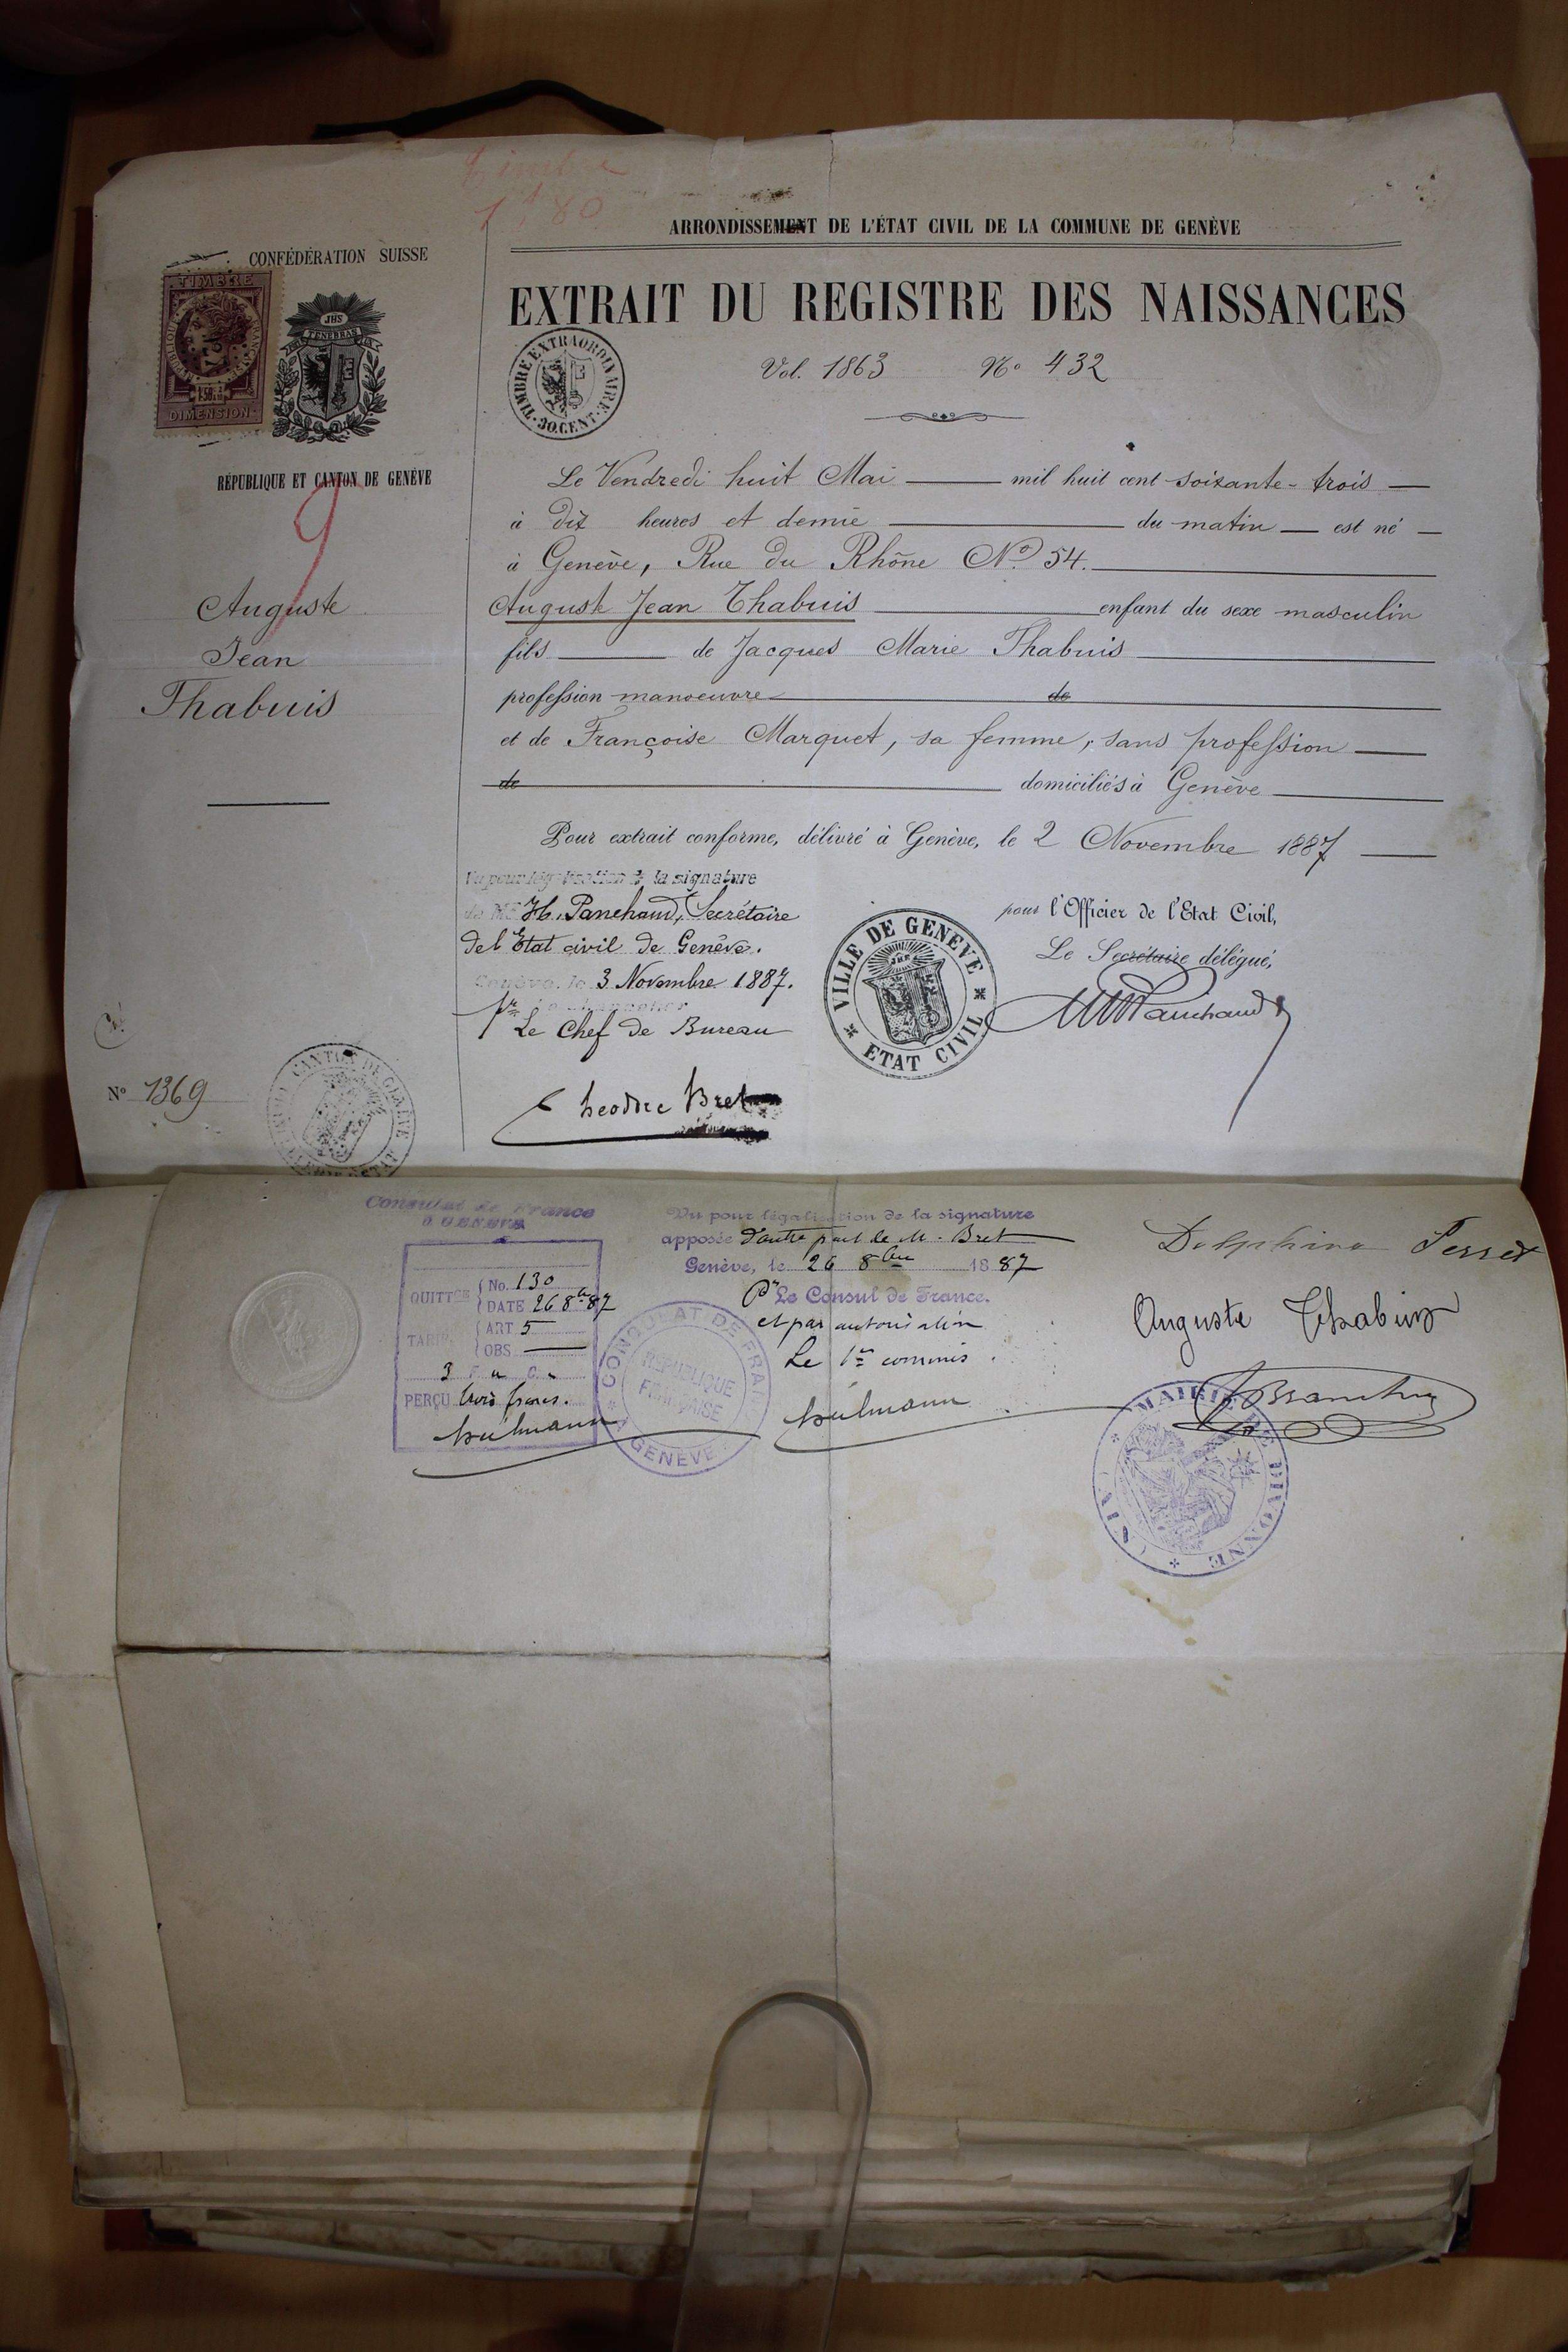 Timbre
1f,80
ARRONDISSEMENT DE L'ÉTAT CIVIL DE LA COMMUNE DE GENÈVE
CONFÉDÉRATION SUISSE
TIMBRE
RÉPUBLIQUE FRANÇAISE
1f50
DIMENSION
JHS
TENEBRAS
RÉPUBLIQUE ET CANTON DE GENÈVE
9
Auguste
Jean
Thabuis
EXTRAIT DU REGISTRE DES NAISSANCES
TIMBRE EXTRAORDINAIRE
30.CENT.
Vol. 1863 No 432
Le Vendredi huit Mai mil huit cent soixante-trois
à dix heures et demie du matin est né
à Genève, Rue du Rhône No 54.
Auguste Jean Thabuis enfant du sexe masculin
fils de Jacques Marie Thabuis
profession manoeuvre de
et de Françoise Marquet, sa femme, sans profession
de domiciliés à Genève
Pour extrait conforme, délivré à Genève, le 2 Novembre 1887
Vu pour légalisation de la signature
de Mr H. Panchaud, Secrétaire
de l'Etat civil de Genève.
Genève, le 3 Novembre 1887.
Pr Le Chancelier
Le Chef de Bureau
Theodore Bret
pour l'Officier de l'Etat Civil,
Le Secrétaire délégué,
Panchaud
VILLE DE GENEVE
ETAT CIVIL
No 1369
CANTON DE GENÈVE
Consulat de France
à GENÈVE
QUITTCE No. 130
DATE 26 8bre 87
TARIF ART 5
OBS
3 F " C "
PERÇU trois francs.
CONSULAT DE FRANCE
RÉPUBLIQUE
FRANÇAISE
A GENÈVE
Vu pour légalisation de la signature
apposée d'autre part de M. Bret
Genève, le 26 8bre 1887
Pr Le Consul de France.
et par autorisation
Le 1er commis
Delphine Perret
Auguste Thabuis
MAIRIE DE DIVONNE
(AIN)